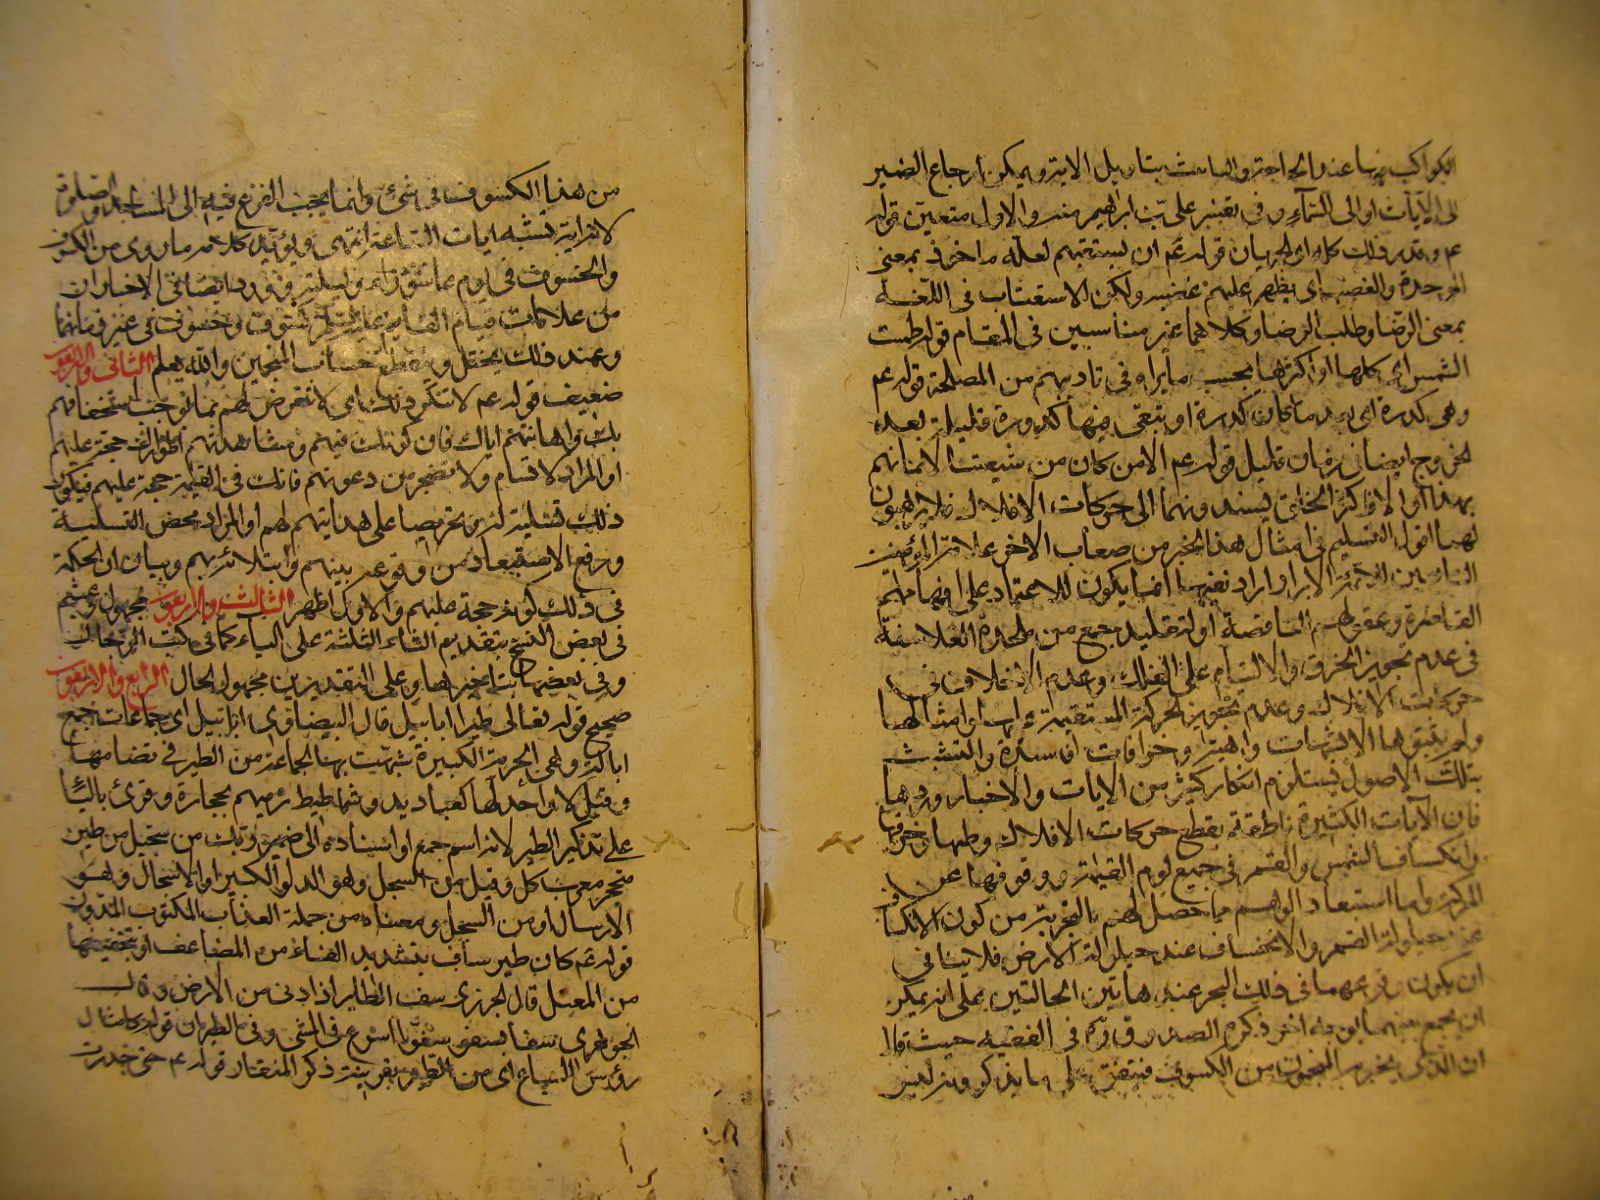 الكواكب عندنا والباعث بتاويل الاية ويمكن ارجاع الضمير
الى الآيات او الى السماء وفي تفسير علي بن ابراهيم والاول متعين قوله
عم وقدر ذلك كله قوله عم ان يستعتبهم لعله ماخوذ بمعنى
الموجدة والغضب اي يظهر عليهم غضبه ولكن الاستعتاب في اللغة
بمعنى الرضا وطلب الرضا وكلاهما غير مناسبين في المقام قوله طمست
الشمس اي كلها او اكثرها بحسب ما يراه في تاديبهم من المصلحة قوله عم
وهي كدرة اي بعد ما كان كدرة او تبقى فيها كدورة قليلة بعد
الخروج ايضا زمان قليل قوله عم الا من كان من شيعتنا لايمانهم
بهذا اولا و اكثر الخلق يسندونهما الى حركات الافلاك فلا يرهبون
لهما اقول التسليم في امثال هذا الخبر من صعاب الاخبار علامة المؤمنين
لائمة الابرار اذ نفيها انما يكون للاعتماد على افهامهم
القاصرة وعقولهم الناقصة او لتقليد جمع من ملحدة الفلاسفة
في عدم تجويز الخرق والالتيام على الفلك وعدم الاختلاف في
حركات الافلاك وعدم تجويز الحركة المستقيمة عليها وامثالها
ولم يثبتوها الا بشبهات واهية وخرافات فاسدة والتشبث
بتلك الاصول يستلزم انكار كثير من الآيات والاخبار وردها
فان الآيات الكثيرة ناطقة بقطع حركات الافلاك وطيها وخرقها
وانكساف الشمس والقمر في جميع يوم القيامة ووقوفها عن
الحركة واما استبعاد الوهم ما حصل لهم بالتجربة من كون الانكساف
عند حيلولة القمر والانخساف عند حيلولة الارض فلا ينافي
ان يكون وقوعهما في ذلك البحر عند هاتين الحالتين على انه يمكن
ان يجمع بينهما بوجه اخر ذكره الصدوق ره في الفقيه حيث قال
ان الذي يخبر به المنجمون من الكسوف فيتفق على ما يذكرونه ليس
من هذا الكسوف في شيء وانما يجب الفزع فيه الى المساجد والصلوة
لانه اية تشبه ايات الساعة انتهى ويؤيد كلامه ما روي من الكسوف
والخسوف في يوم عاشوراء وليلته وورد ايضا في الاخبار ان
من علامات قيام القايم عليه السلام كسوف وخسوف في غير زمانهما
وعند ذلك يختل وينقطع حساب المنجمين والله يعلم الثاني والاربعون
ضعيف قوله عم لا تنكر ذلك اي لا تتعرض لهم بما يوجب استخفافهم
بك واهانتهم اياك فان كونك فيهم ومشاهدتهم اطوارك حجة عليهم
او المراد لا تسأم ولا تضجر من دعوتهم فانك في القيمة حجة عليهم فيكون
ذلك تسلية له وتحريصا على هدايتهم لهم او المراد محض التسلية
ورفع الاستبعاد من وقوعه بينهم وابتلائه بهم وبيان ان الحكمة
في ذلك كونه حجة عليهم والاول اظهر الثالث والاربعون مجهول وعيثم
في بعض النسخ بتقديم الثاء المثلثة على الياء كما في كتب الرجال
وفي بعضها بتاخيرها وعلى التقديرين مجهول الحال الرابع والاربعون
صحيح قوله تعالى طيرا ابابيل قال البيضاوي ابابيل اي جماعات جمع
ابالة وهي الحزمة الكبيرة شبهت بها الجماعة من الطير في تضامها
وقيل لا واحد لها كعباديد وشماطيط ترميهم بحجارة وقرئ بالياء
على تذكير الطير لانه اسم جمع او اسناده الى ضمير ربك من سجيل من طين
متحجر معرب كل وقيل من السجل وهو الدلو الكبير او الاسجال وهو
الارسال او من السجل ومعناه من جملة العذاب المكتوب المدون
قوله عم كان طير ساف بتشديد الفاء من المضاعف او بتخفيفها
من المعتل قال الجزري سف الطائر اذا دنى من الارض وقال
الجوهري سفا يسفو سفوا اسرع في المشي وفي الطيران قوله كامثال
رؤس السباع اي من الطير بقرينة ذكر المنقار قوله عم حتى جدرت